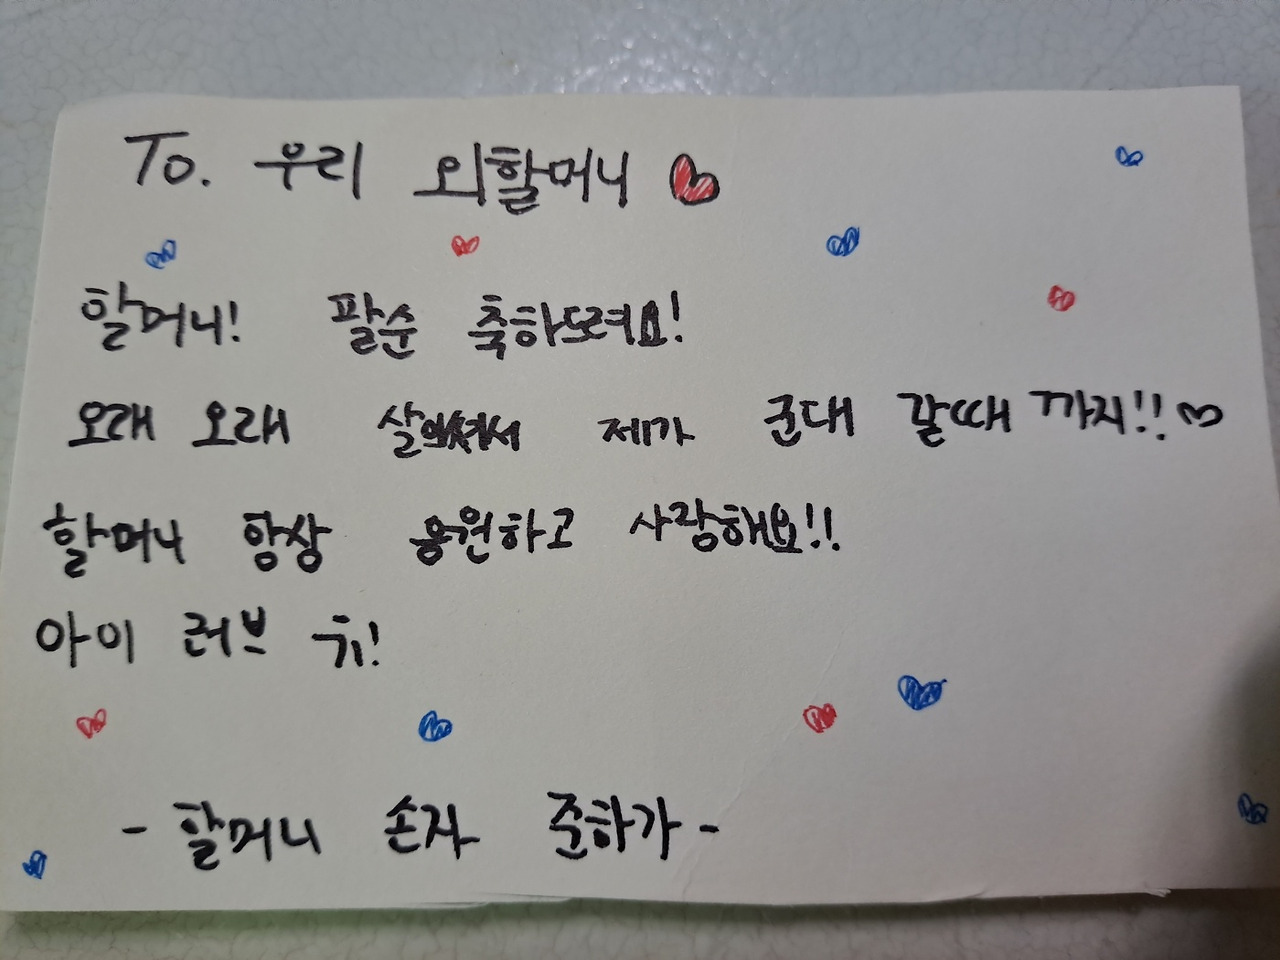 To. 우리 외할머니
할머니! 팔순 축하드려요!
오래 오래 제가 군대 갈때 까지!!
할머니 항상 응원하고 사랑해요!!
아이 러브 유!
- 할머니 손자 준하가 -